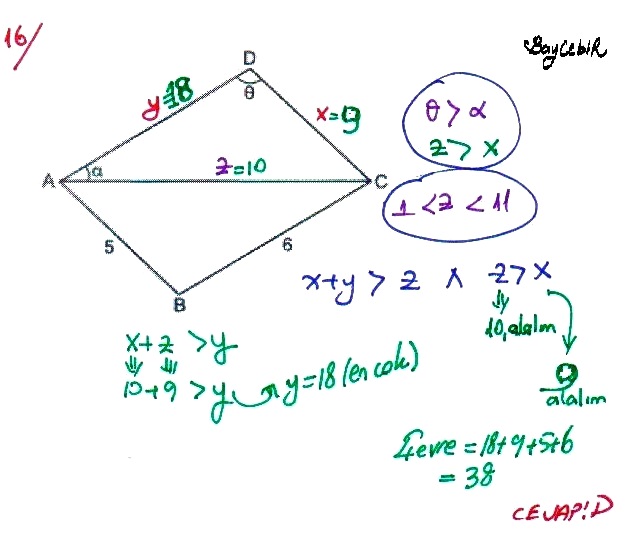 16/
BayCebiR
D
θ
y=18
x=9
θ > α
z > x
α
z=10
A
C
1 < z < 11
5
6
B
x+y > z ∧ z > x
10, alalım
x+z > y
10+9 > y → y=18 (en çok)
9
alalım
Çevre = 18+9+5+6
= 38
CEVAP: D